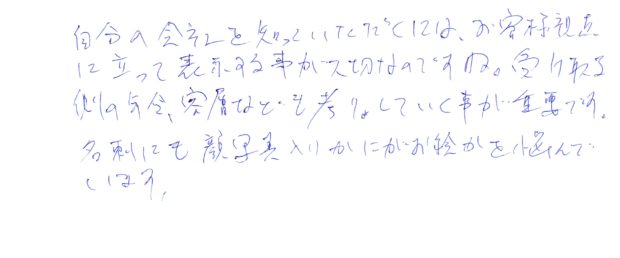 自分の会社を知っていただくには、お客様視点
に立って表示する事が大切なのですね。受け取る
側の年令、客層なども考慮していく事が重要です。
名刺にも顔写真入りかにがお絵かを悩んで
います。